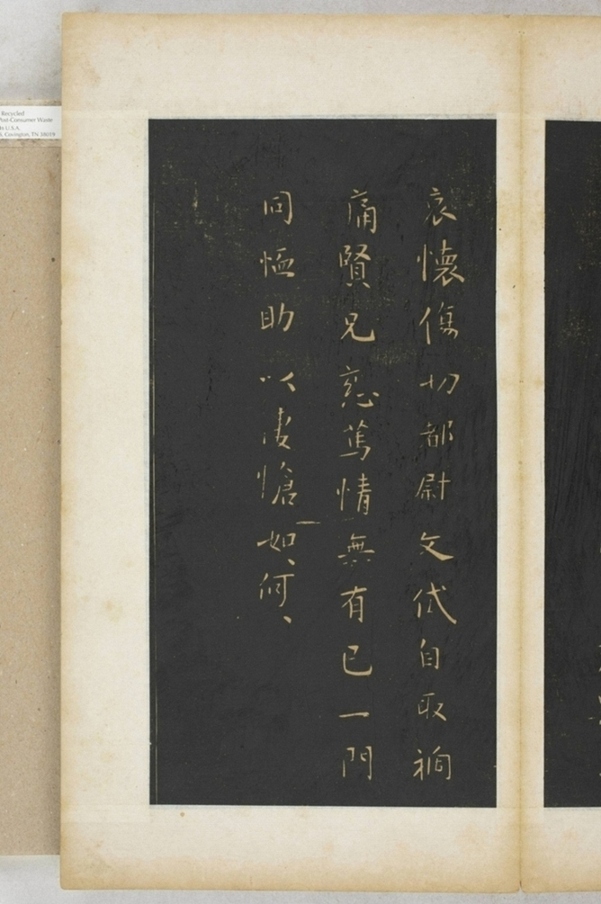 哀懷傷切都尉文伐自取禍
痛賢兄慈篤情無有已一門
同恤助以悽愴如何如何
Recycled
Post-Consumer Waste
Covington, TN 38019